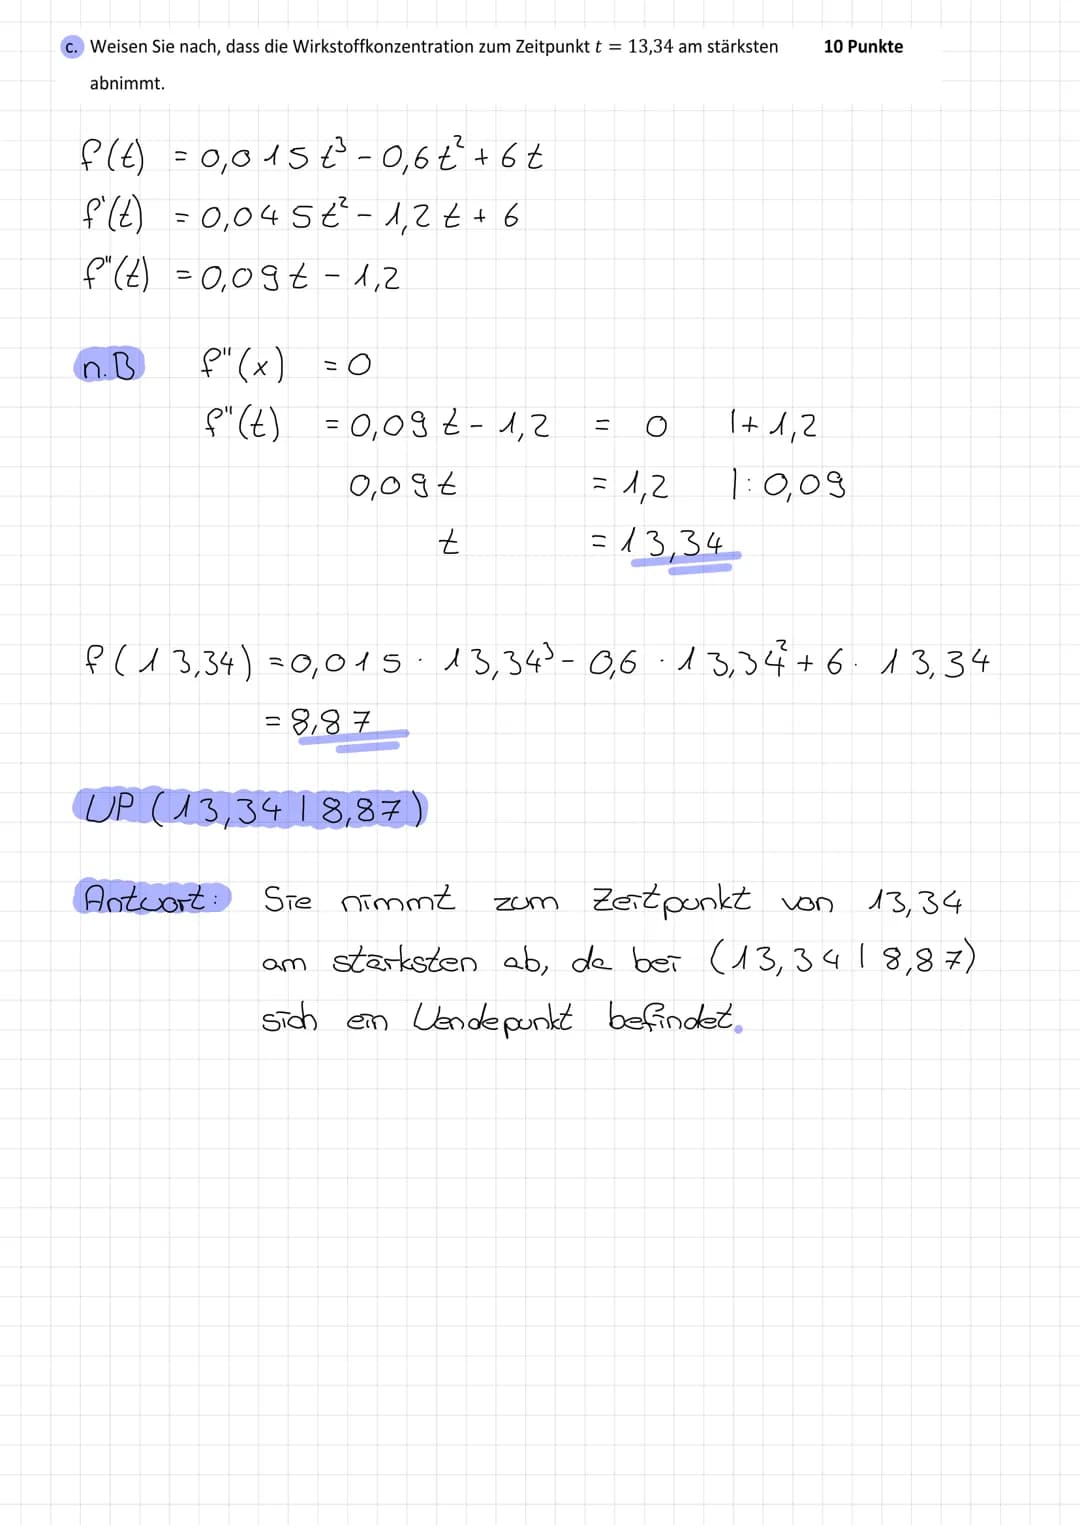 c. Weisen Sie nach, dass die Wirkstoffkonzentration zum Zeitpunkt t = 13,34 am stärksten 10 Punkte
abnimmt.
f(t) = 0,015t³ - 0,6t² + 6t
f'(t) = 0,045t² - 1,2t + 6
f''(t) = 0,09t - 1,2
n.B f''(x) = 0
f''(t) = 0,09t - 1,2 = 0 |+ 1,2
0,09t = 1,2 |: 0,09
t = 13,34
f(13,34) = 0,015 · 13,34³ - 0,6 · 13,34² + 6 · 13,34
= 8,87
WP (13,34 | 8,87)
Antwort: Sie nimmt zum Zeitpunkt von 13,34
am stärksten ab, da bei (13,34 | 8,87)
sich ein Wendepunkt befindet.